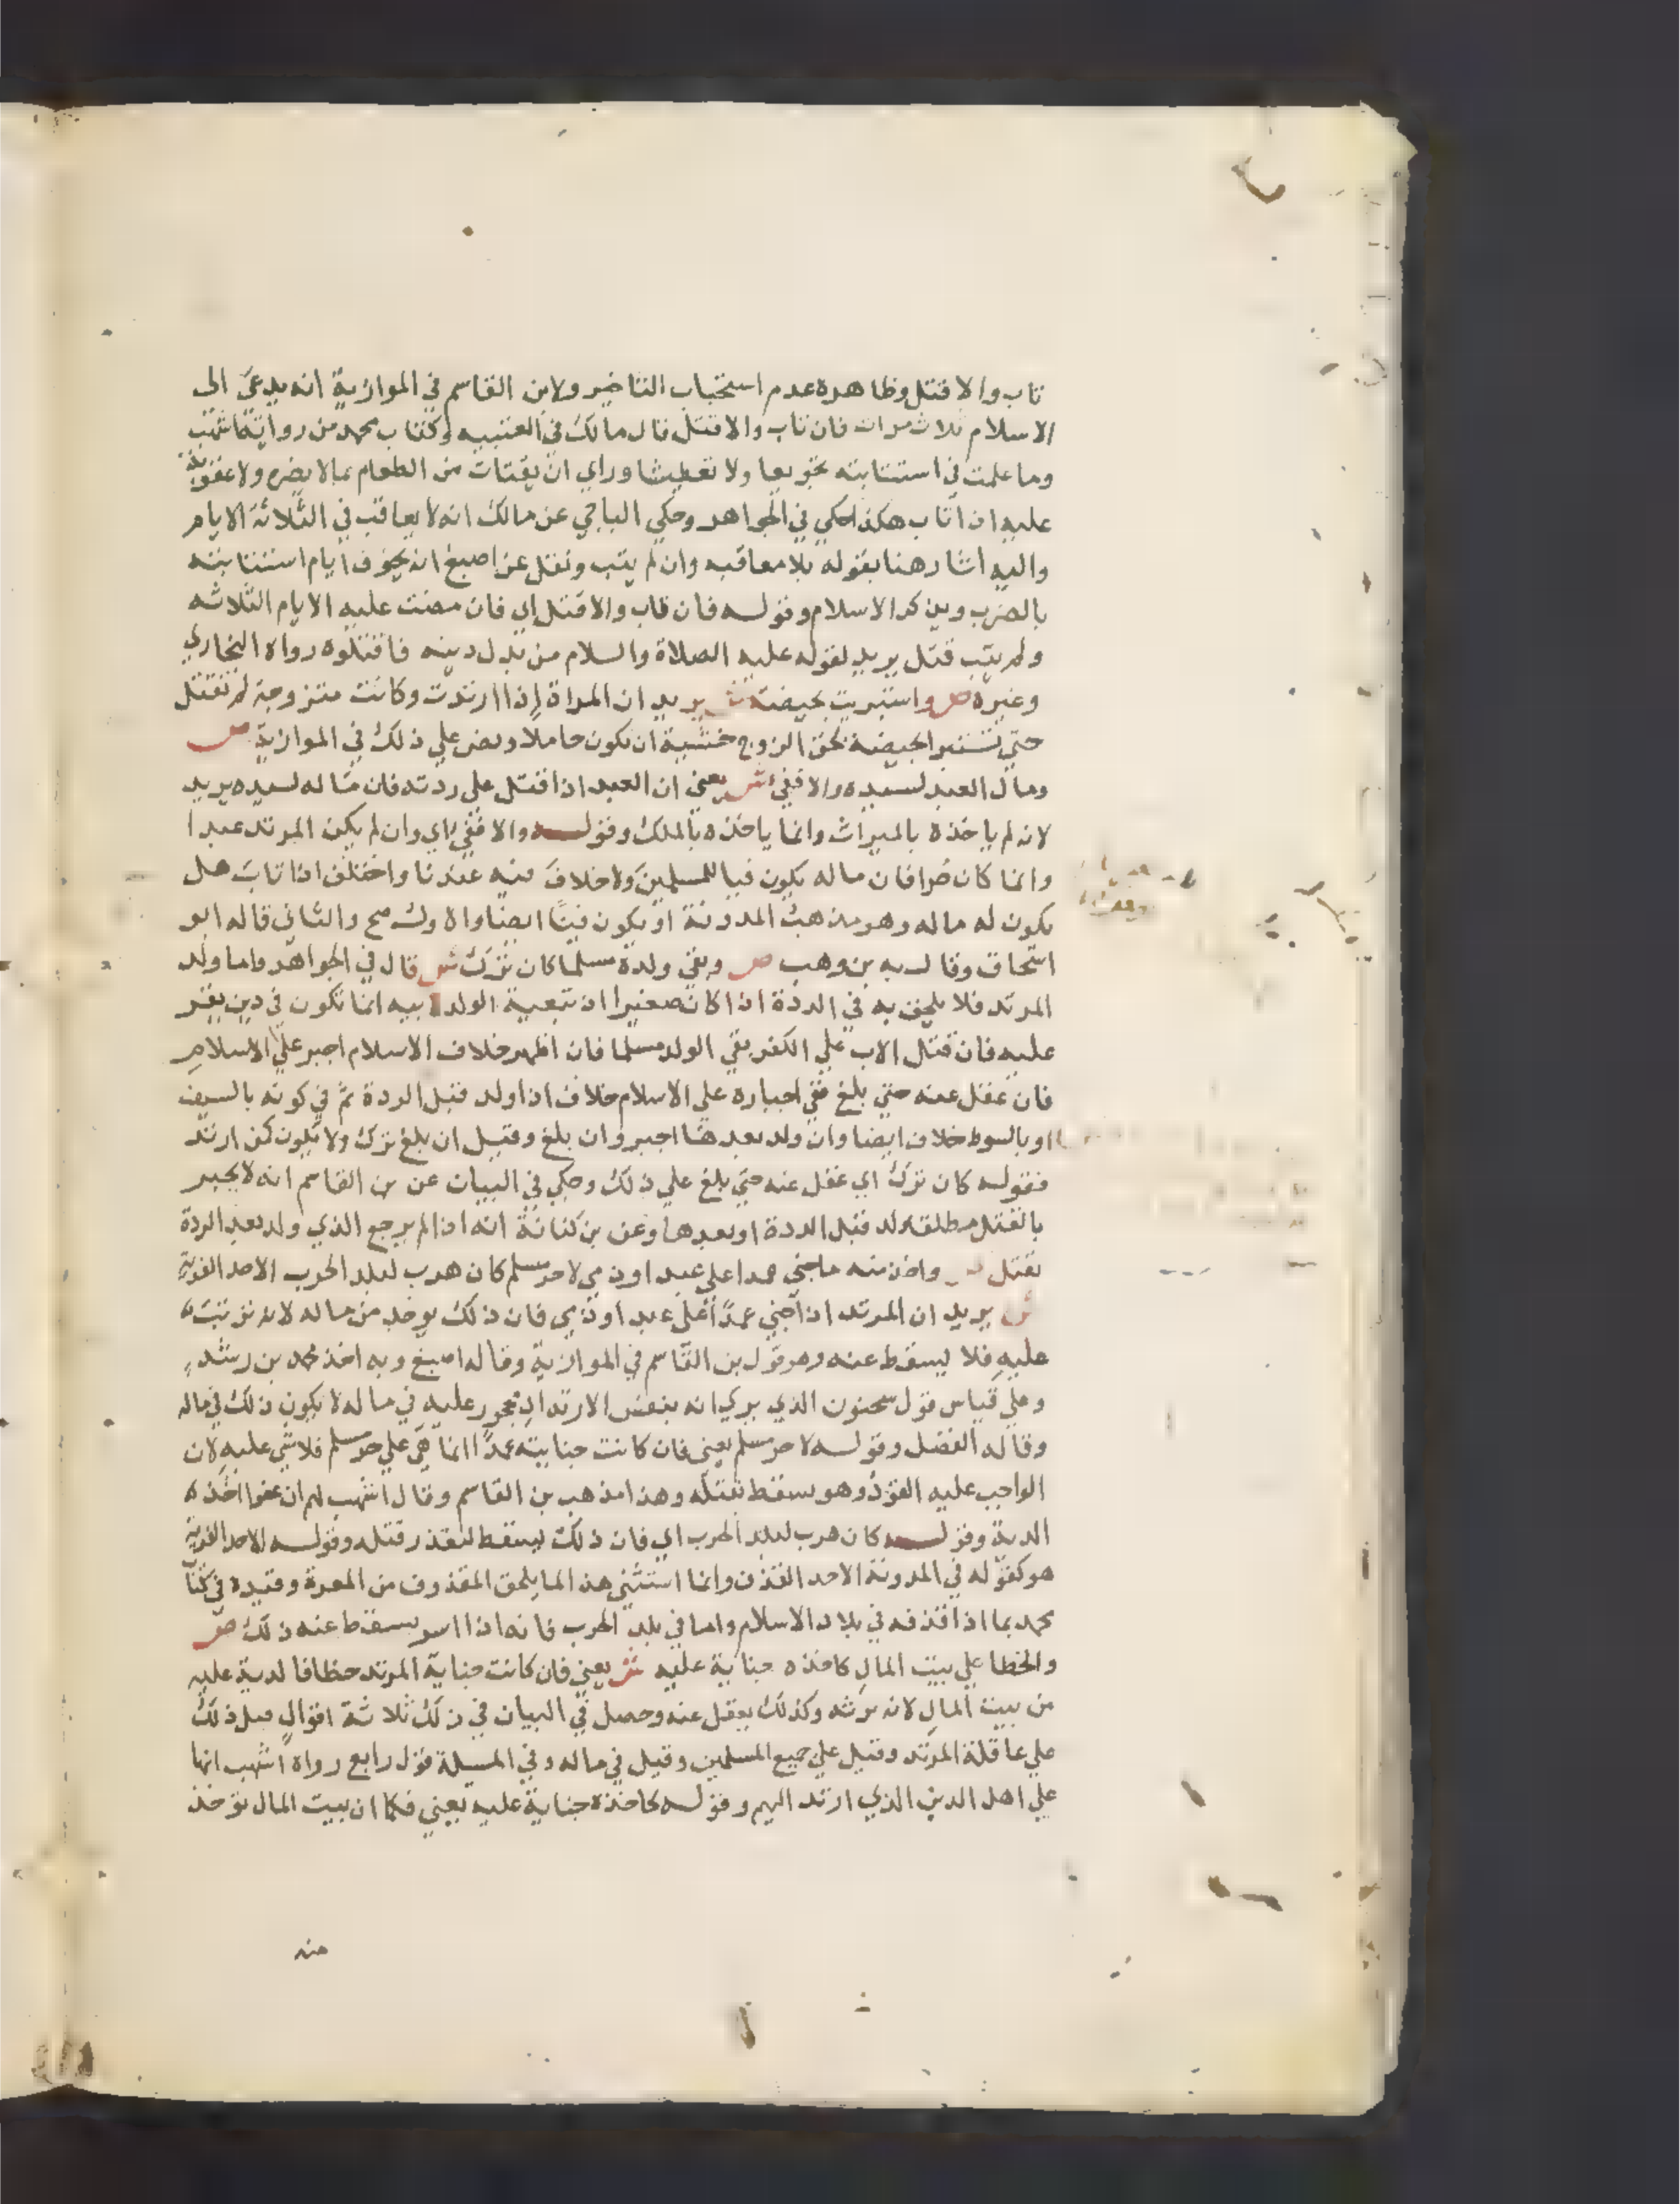 تاب والا قتل وظاهره عدم استحباب التاخير ولابن القاسم في الموازية انه يدعي الى
الاسلام ثلاث مرات فان تاب والا قتل قال مالك في العتبيه وكتاب محمد من رواية اشهب
وما علمت في استتابته تجويعا ولا تعطيشا وراي ان يقتات من الطعام بما لا يضره ولا عقوبة
عليه اذا تاب هكذا حكي في الجواهر وحكي الباجي عن مالك انه لا يعاقب في الثلاثة الايام
واليه اشار هنا بقوله بلا معاقبه وان لم يتب ونقل عن اصبغ انه يخوف ايام استتابته
بالضرب ويذكر الاسلام وقوله فان تاب والا قتل اي فان مضت عليه الايام الثلاثه
ولم يتب قتل يريد لقوله عليه الصلاة والسلام من بدل دينه فاقتلوه رواه البخاري
وغيره ص واستبريت بحيضة ش يريد ان المراة إذا ارتدت وكانت متزوجة لم تقتل
حتي تستبرا بحيضة لحق الزوج خشية ان تكون حاملا ونص علي ذلك في الموازية ص
ومال العبد لسيده والا ففيء ش يعني ان العبد اذا قتل على ردته فان ماله لسيده يريد
لانه لم ياخذه بالميراث وانما ياخذه بالملك وقوله والا ففيء اي وان لم يكن المرتد عبدا
وانما كان حرا فان ماله يكون فيا للمسلمين ولا خلاف فيه عندنا واختلف اذا تاب هل
يكون له ماله وهو مذهب المدونة او يكون فيئا ايضا والاول اصح والثاني قاله ابو
اسحاق وقال به بن وهب ص وبقي ولده مسلما كان ترك ش قال في الجواهر واما ولد
المرتد فلا يلحق به في الردة اذا كان صغيرا اذ تبعية الولد لابيه انما تكون في دين يقر
عليه فان قتل الاب علي الكفر بقي الولد مسلما فان اظهر خلاف الاسلام اجبر علي الاسلام
فان غفل عنه حتي بلغ ففي اجباره على الاسلام خلاف اذا ولد قبل الردة ثم في كونه بالسيف
او بالسوط خلاف ايضا وان ولد بعدها اجبر وان بلغ وقيل ان بلغ ترك ولا يكون كمن ارتد
فقوله كان ترك اي غفل عنه حتي بلغ علي ذلك وحكي في البيان عن بن القاسم انه لا يجبر
بالقتل مطلقا ولد قبل الردة او بعدها وعن بن كنانة انه اذا لم يرجع الذي ولد بعد الردة
يقتل ص واخذ منه ما جني عمدا على عبد او ذمي لا حر مسلم كان هرب لبلد الحرب الا حد الفرية
ش يريد ان المرتد اذا جني عمدا على عبد او ذمي فان ذلك يوخذ من ماله لانه ترتب
عليه فلا يسقط عنه وهو قول بن القاسم في الموازية وقاله اصبغ وبه اخذ محمد بن رشد
وعلي قياس قول سحنون الذي يري انه بنفس الارتداد محجور عليه في ماله لا يكون ذلك في ماله
وقاله الفضل وقوله لا حر مسلم يعني فان كانت جنايته عمدا انما هي علي حر مسلم فلا شي عليه لان
الواجب عليه القود وهو يسقط بقتله وهذا مذهب بن القاسم وقال اشهب لهم ان عفوا اخذ
الدية وقوله كان هرب لبلد الحرب اي فان ذلك يسقط لتعذر قتله وقوله الا حد الفرية
هو كقوله في المدونة الا حد القذف وانما استثني هذا لما يلحق المقذوف من المعرة وقيده في كتاب
محمد بما اذا قذفه في بلاد الاسلام واما في بلد الحرب فانه اذا اسر يسقط عنه ذلك ص
والخطا علي بيت المال كاخذه جناية عليه ش يعني فان كانت جناية المرتد خطا فالدية عليه
من بيت المال لانه يرثه وكذلك يعقل عنه وحصل في البيان في ذلك ثلاثة اقوال قيل ذلك
علي عاقلة المرتد وقيل علي جميع المسلمين وقيل في ماله وفي المسيلة قول رابع رواه اشهب انها
علي اهل الدين الذي ارتد اليهم وقوله كاخذه جناية عليه يعني فكما ان بيت المال توخذ
منه